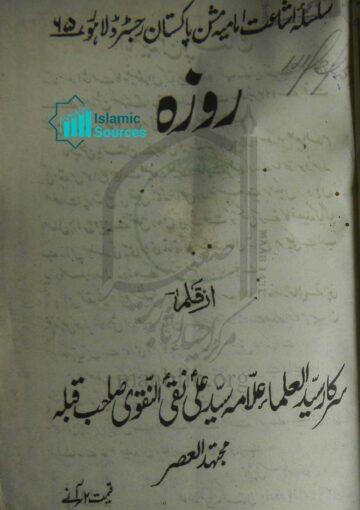 سلسلۂ اشاعت امامیہ مشن پاکستان رجسٹرڈ لاہور ۶۵
Islamic
Sources
روزہ
از قلم
سرکار سید العلماء علامہ سید علی نقی النقوی صاحب قبلہ
مجتہد العصر
قیمت ۲ر آنے